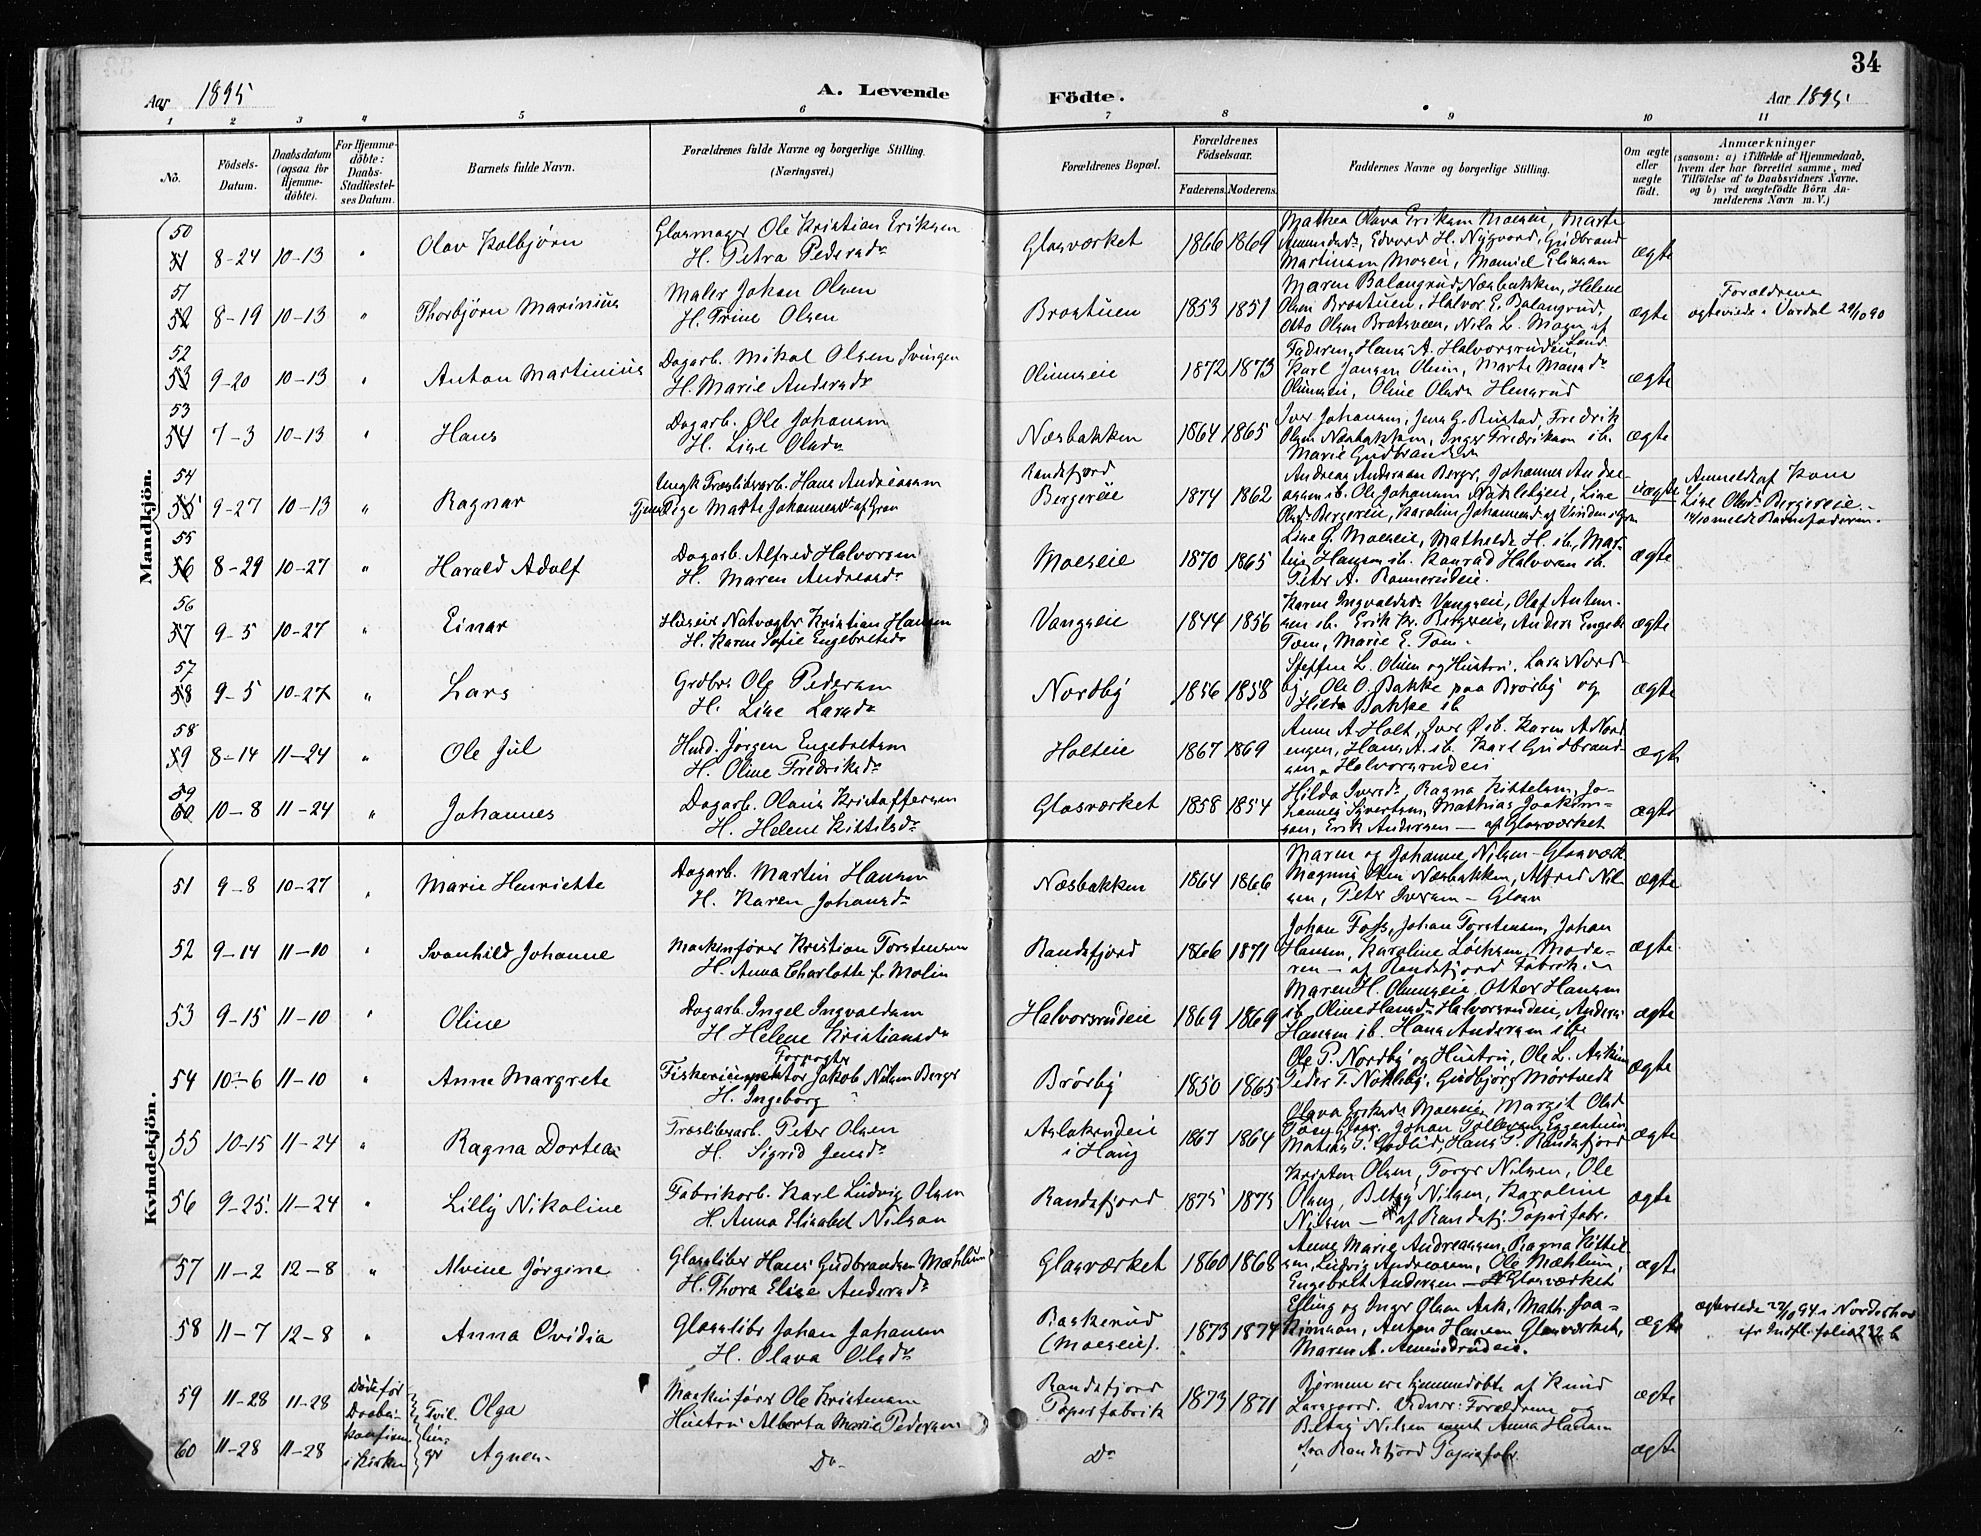 34
Aar 1895 A. Levende Födte. Aar 1895.
1 2 3 4 5 6 7 8 9 10 11
No. Födsels-Datum. Daabsdatum (ogsaa for Hjemmedöbte). For Hjemmedöbte: Daabs-Stadfæstelses Datum. Barnets fulde Navn. Forældrenes fulde Navne og borgerlige Stilling. (Næringsvei.) Forældrenes Bopæl. Forældrenes Födselsaar. Faderens. Moderens. Faddernes Navne og borgerlige Stilling. Om ægte eller uægte födt. Anmærkninger (saasom: a) i Tilfælde af Hjemmedaab, hvem der har forrettet samme, med Tilföielse af to Daabsvidners Navne, og b) ved uægtefödte Börn Anmelderens Navn m. V.)
Mandkjön.
50 51 8-24 10-13 " Olav Kolbjørn Glasmager Ole Kristian Eriksen H. Petra Pedersdr Glasværket 1866 1869 Mathea Olava Eriksen Moeseie, Marte Amundsdr, Edvard H. Nygaard, Gudbrand Martinsen Moseie, Manuel Eliassen ægte
51 52 8-19 10-13 " Thorbjørn Marinius Maler Johan Olsen H. Trine Olsen Braatuen 1853 1851 Maren Balangrud Næsbakken, Helene Olsen Braatuen, Halvor E. Balangrud, Otto Olsen Braatveen, Nils L. Moen af Land ægte Forældrene ægteviede i Vardal 29/10 90
52 53 9-20 10-13 " Anton Martinius Dagarb. Mikal Olsen Svingen H. Marie Andersdr Olimseie 1872 1873 Faderen, Hans A. Halvorsrudeie, Karl Jansen Olim, Marte Mansdr Olimseie, Oline Olsdr Hensrud ægte
53 54 7-3 10-13 " Hans Dagarb. Ole Johansen H. Lise Olsdr Næsbakken 1864 1865 Iver Johansen, Jens G. Rustad, Fredrik Olsen Næsbakken, Inger Fredriksen ib. Marie Gudbrandsen ægte
54 55 9-27 10-13 " Ragnar Ungk Træsliberarb. Hans Andreassen Tjenestepige Marte Johannesdr af Gran Randsfjord Bergereie 1874 1862 Andreas Andersen Berger, Johannes Andreassen ib. Ole Johansen Nøklebyeie, Lise Olsdr Bergereie, Karoline Johannesd af Vinden i Gran uægte Anmeldt af Kone Lise Olsdr Bergereie. 14/10 meldt Barnefaderen.
55 56 8-29 10-27 " Harald Adolf Dagarb. Alfred Halvorsen H. Maren Andreasdr Moeseie 1870 1865 Lise G. Moeseie, Mathilde H. ib., Martin Hansen ib. Konrad Halvorsen ib. Peter A. Rannerudeie. ægte
56 57 9-5 10-27 " Einar Huseier Natvægter Kristian Hansen H. Karen Sofie Engebretsdr Vangseie 1844 1856 Karen Ingvaldsdr Vangseie, Olaf Antonsen ib. Erik Kr. Bergseie, Anders Engebr. Tom, Marie E. Tom. ægte
57 58 9-5 10-27 " Lars Grdbr. Ole Pedersen H. Lise Larsdr Nordby 1856 1858 Steffen L. Olim og Hustru, Lars Nordby, Ole O. Bakke paa Brørby og Hilda Bakke ib ægte
58 59 8-14 11-24 " Ole Jul Husd. Jørgen Engebretsen H. Oline Fredriksdr Holteie 1867 1869 Anne A. Holt, Iver Ø ib. Karen A. Nordengen, Hans A. ib. Karl Gudbrandsen, Halvorsrudeie ægte
59 60 10-8 11-24 " Johannes Dagarb. Olaus Kristoffersen H. Helene Kittilsdr Glasværket 1858 1854 Hilda Iversdr, Ragna Kittelsen, Johannes Syvertsen, Mathias Joakimsen, Erik Andersen — af Glasværket ægte
Kvindekjön.
51 9-8 10-27 " Marie Henriette Dagarb. Martin Hansen H. Karen Johansdr Næsbakken 1864 1866 Maren og Johanne Nilsen - Glasværk Magnus Næsbakken, Alfred Nilsen, Peter Iversen — Glasv ægte
52 9-14 11-10 " Svanhild Johanne Maskinfører Kristian Torstensen H. Anna Charlotte f. Molin Randsfjord 1866 1871 Johan Foss, Johan Torstensen, Johan Hansen, Karoline Løcksen, Moderen — af Randsfjord Fabrik. ægte
53 9-15 11-10 " Oline Dagarb. Ingel Ingvaldsen H. Helene Kristiansdr Halvorsrudeie 1869 1869 Maren H. Olimseie, Otter Hansen ib. Oline Hansdr Halvorsrudeie, Anders Hansen ib. Hans Andersen ib. ægte
54 10-6 11-10 " Anne Margrete Forvogter Fiskeriinspektor Jakob Nilsen Berger H. Ingeborg " Brørby 1850 1865 Ole P. Nordby og Hustru, Ole L. Askim, Peder T. Nøkleby, Gudbjørg Mørtvedt ægte
55 10-15 11-24 " Ragna Dortea Træsliberarb. Peter Olsen H. Sigrid Jensdr Aslakrudeie i Haug 1867 1864 Olava Eriksdr Moeseie, Margit Olsd Johan Tollevsen Eggentun, Mathias P. Godlid, Hans P. Randsfjord ægte
56 9-25. 11-24 " Lilly Nikoline Fabrikarb. Karl Ludvig Olsen H. Anna Elisabet Nilsen Randsfjord 1875 1875 Kristen Olsen, Torger Nilsen, Ole Olsen, Betsy Nilsen, Karoline Nilsen — af Randsfj. Papirfabr. ægte
57 11-2 12-8 " Alvine Jørgine Glassliber Hans Gudbrandsen Mæhlum H. Thora Elise Andersdr Glasværket 1860 1868 Anne Marie Andreassen, Ragna Kittelsen, Ludvig Andreassen, Ole Mæhlum, Engebret Andersen — Glasværket ægte
58 11-7 12-8 " Anna Ovidia Glasslibr Johan Johansen H. Olava Olsdr Bakkerud (Moeseie). 1873 1874 Elling og Inger Olsen Ask, Math. Joakimsen, Anton Hansen Glasværket, Maren A. Amundrudeie. ægte ægteviede 27/10 94 i Norderhov cfr Indfl. folio 232 b
59 11-28 11-28 Døde før Daabskonfirm i Kirken Tvillinger Olga Maskinfører Ole Kristensen Hustru Alberta Marie Pedersen Randsfjord Papirfabrik 1873 1871 Børnene ere hjemmedøbte af Knud Larsgaard. Vidner: Forældrene og Betsy Nilsen samt Anna Hansen fra Randsfjord Papirfabr. ægte
60 11-28 11-28 Agnes. Do Do ægte